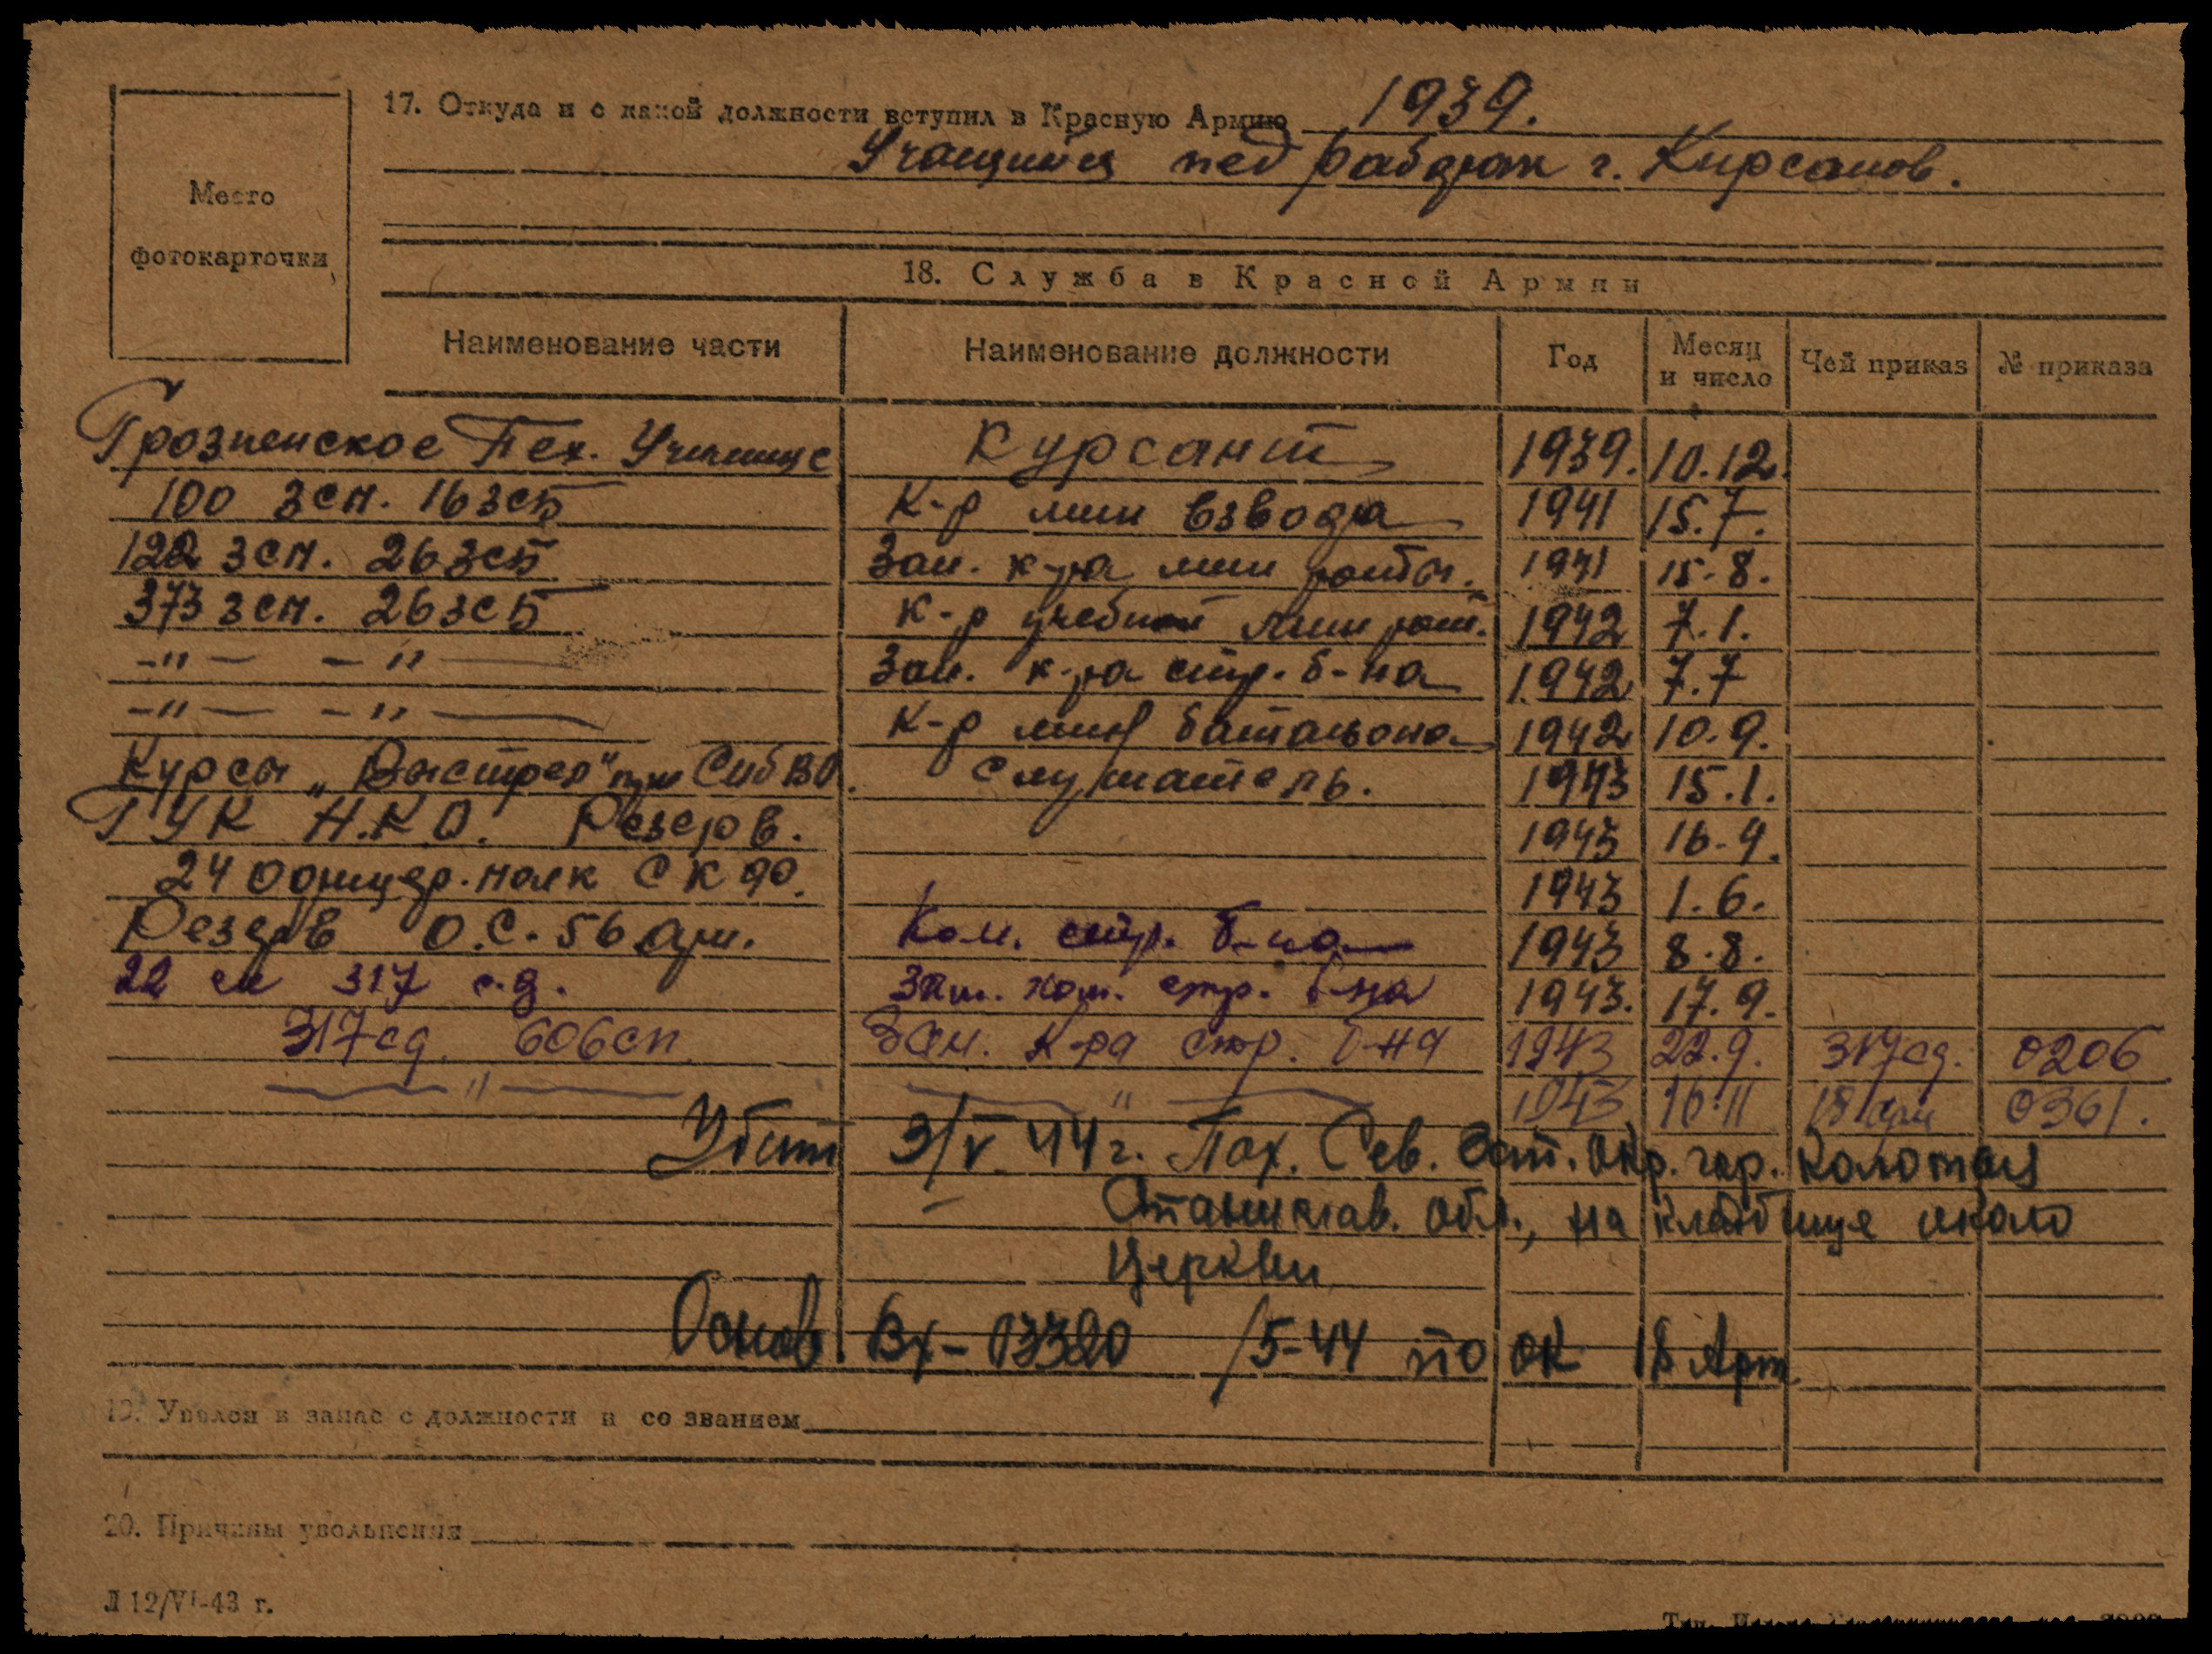 Место
фотокарточки
17. Откуда и с какой должности вступил в Красную Армию 1939.
Учащийся пед рабфак г. Кирсанов.
18. Служба в Красной Армии
Наименование части Наименование должности Год Месяц и число Чей приказ № приказа
Грозненское Пех. Училище Курсант 1939. 10.12.
100 зсп. 16 зсб К-р мин взвода 1941 15.7.
122 зсп. 26 зсб Зам. к-ра мин роты. 1941 15.8.
373 зсп. 26 зсб К-р учебной мин рот. 1942 7.1.
-"- -"- Зам. к-ра стр. б-на 1942 7.7
-"- -"- К-р мин батальона 1942 10.9.
Курсы „Выстрел" при СибВО. слушатель. 1943 15.1.
ГУК Н.К.О. Резерв. 1943 16.4.
24 офицер. полк СКФ. 1943 1.6.
Резерв О.С. 56 арм. Ком. стр. б-на 1943 8.8.
22 ск 317 с.д. Зам. ком. стр. б-на 1943. 17.9.
317 сд. 606 сп. Зам. К-ра стр. б-на 1943 22.9. 317 сд. 0206
" " 1943 16.11 18 арм 0361.
Убит 3/V-44 г. Пох. Сев. Зап. окр. гор. Коломыя
Станислав. обл., на кладбище около
Церкви
Основ. Вх-03320 /5-44 по ОК 18 Арм.
19. Уволен в запас с должности и со званием
20. Причины увольнения
Л 12/VI-43 г.